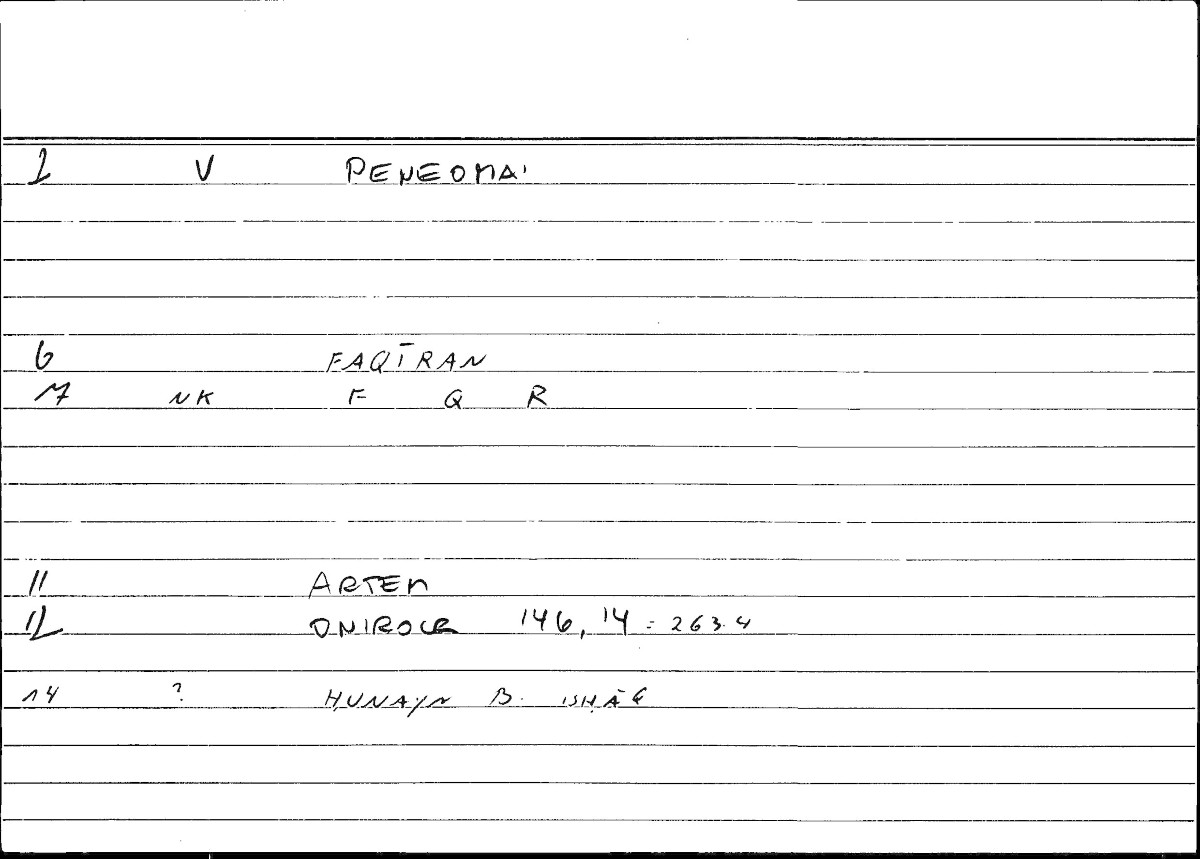 1 V PENEOMAI
6 FAQĪRAN
7 NK F Q R
11 ARTEM
12 ONIROCR 146, 14 = 263.4
14 ? ḤUNAYN B. ISḤĀQ